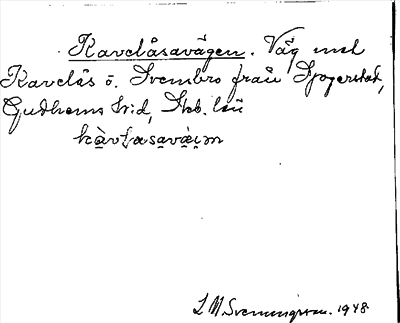 Kavelåsavägen. Väg mot
Kavelås o. Svenbro från Spogerstat,
Gudhems hrd, Skb. län
kàvlasavä̀im
L M Svenningsson. 1948